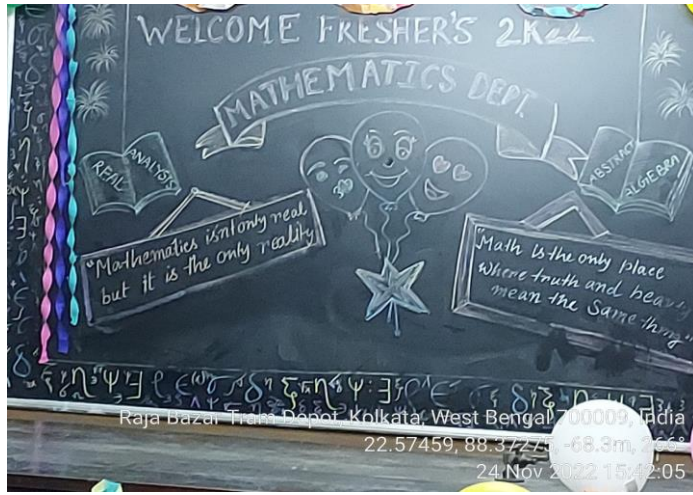 WELCOME FRESHER'S 2K22
MATHEMATICS DEPT.
REAL ANALYSIS
ABSTRACT ALGEBRA
"Mathematics isn't only real
but it is the only reality"
"Math is the only place
where truth and beauty
mean the same thing"
Raja Bazar Tram Depot, Kolkata, West Bengal 700009, India
22.57459, 88.37275, -68.3m, 266°
24 Nov 2022 15:42:05